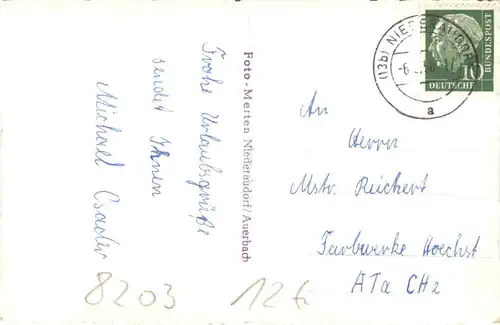 Frohe Urlaubsgrüße
sendet Ihnen
Michael
8203
Foto-Merten Niederaudorf/Auerbach
12 fr
(13b) NIEDERAUDORF
-6.
a
DEUTSCHE
BUNDESPOST
10
An
Herrn
Mstr. Reichert
Farbwerke Hoechst
ATa CH2